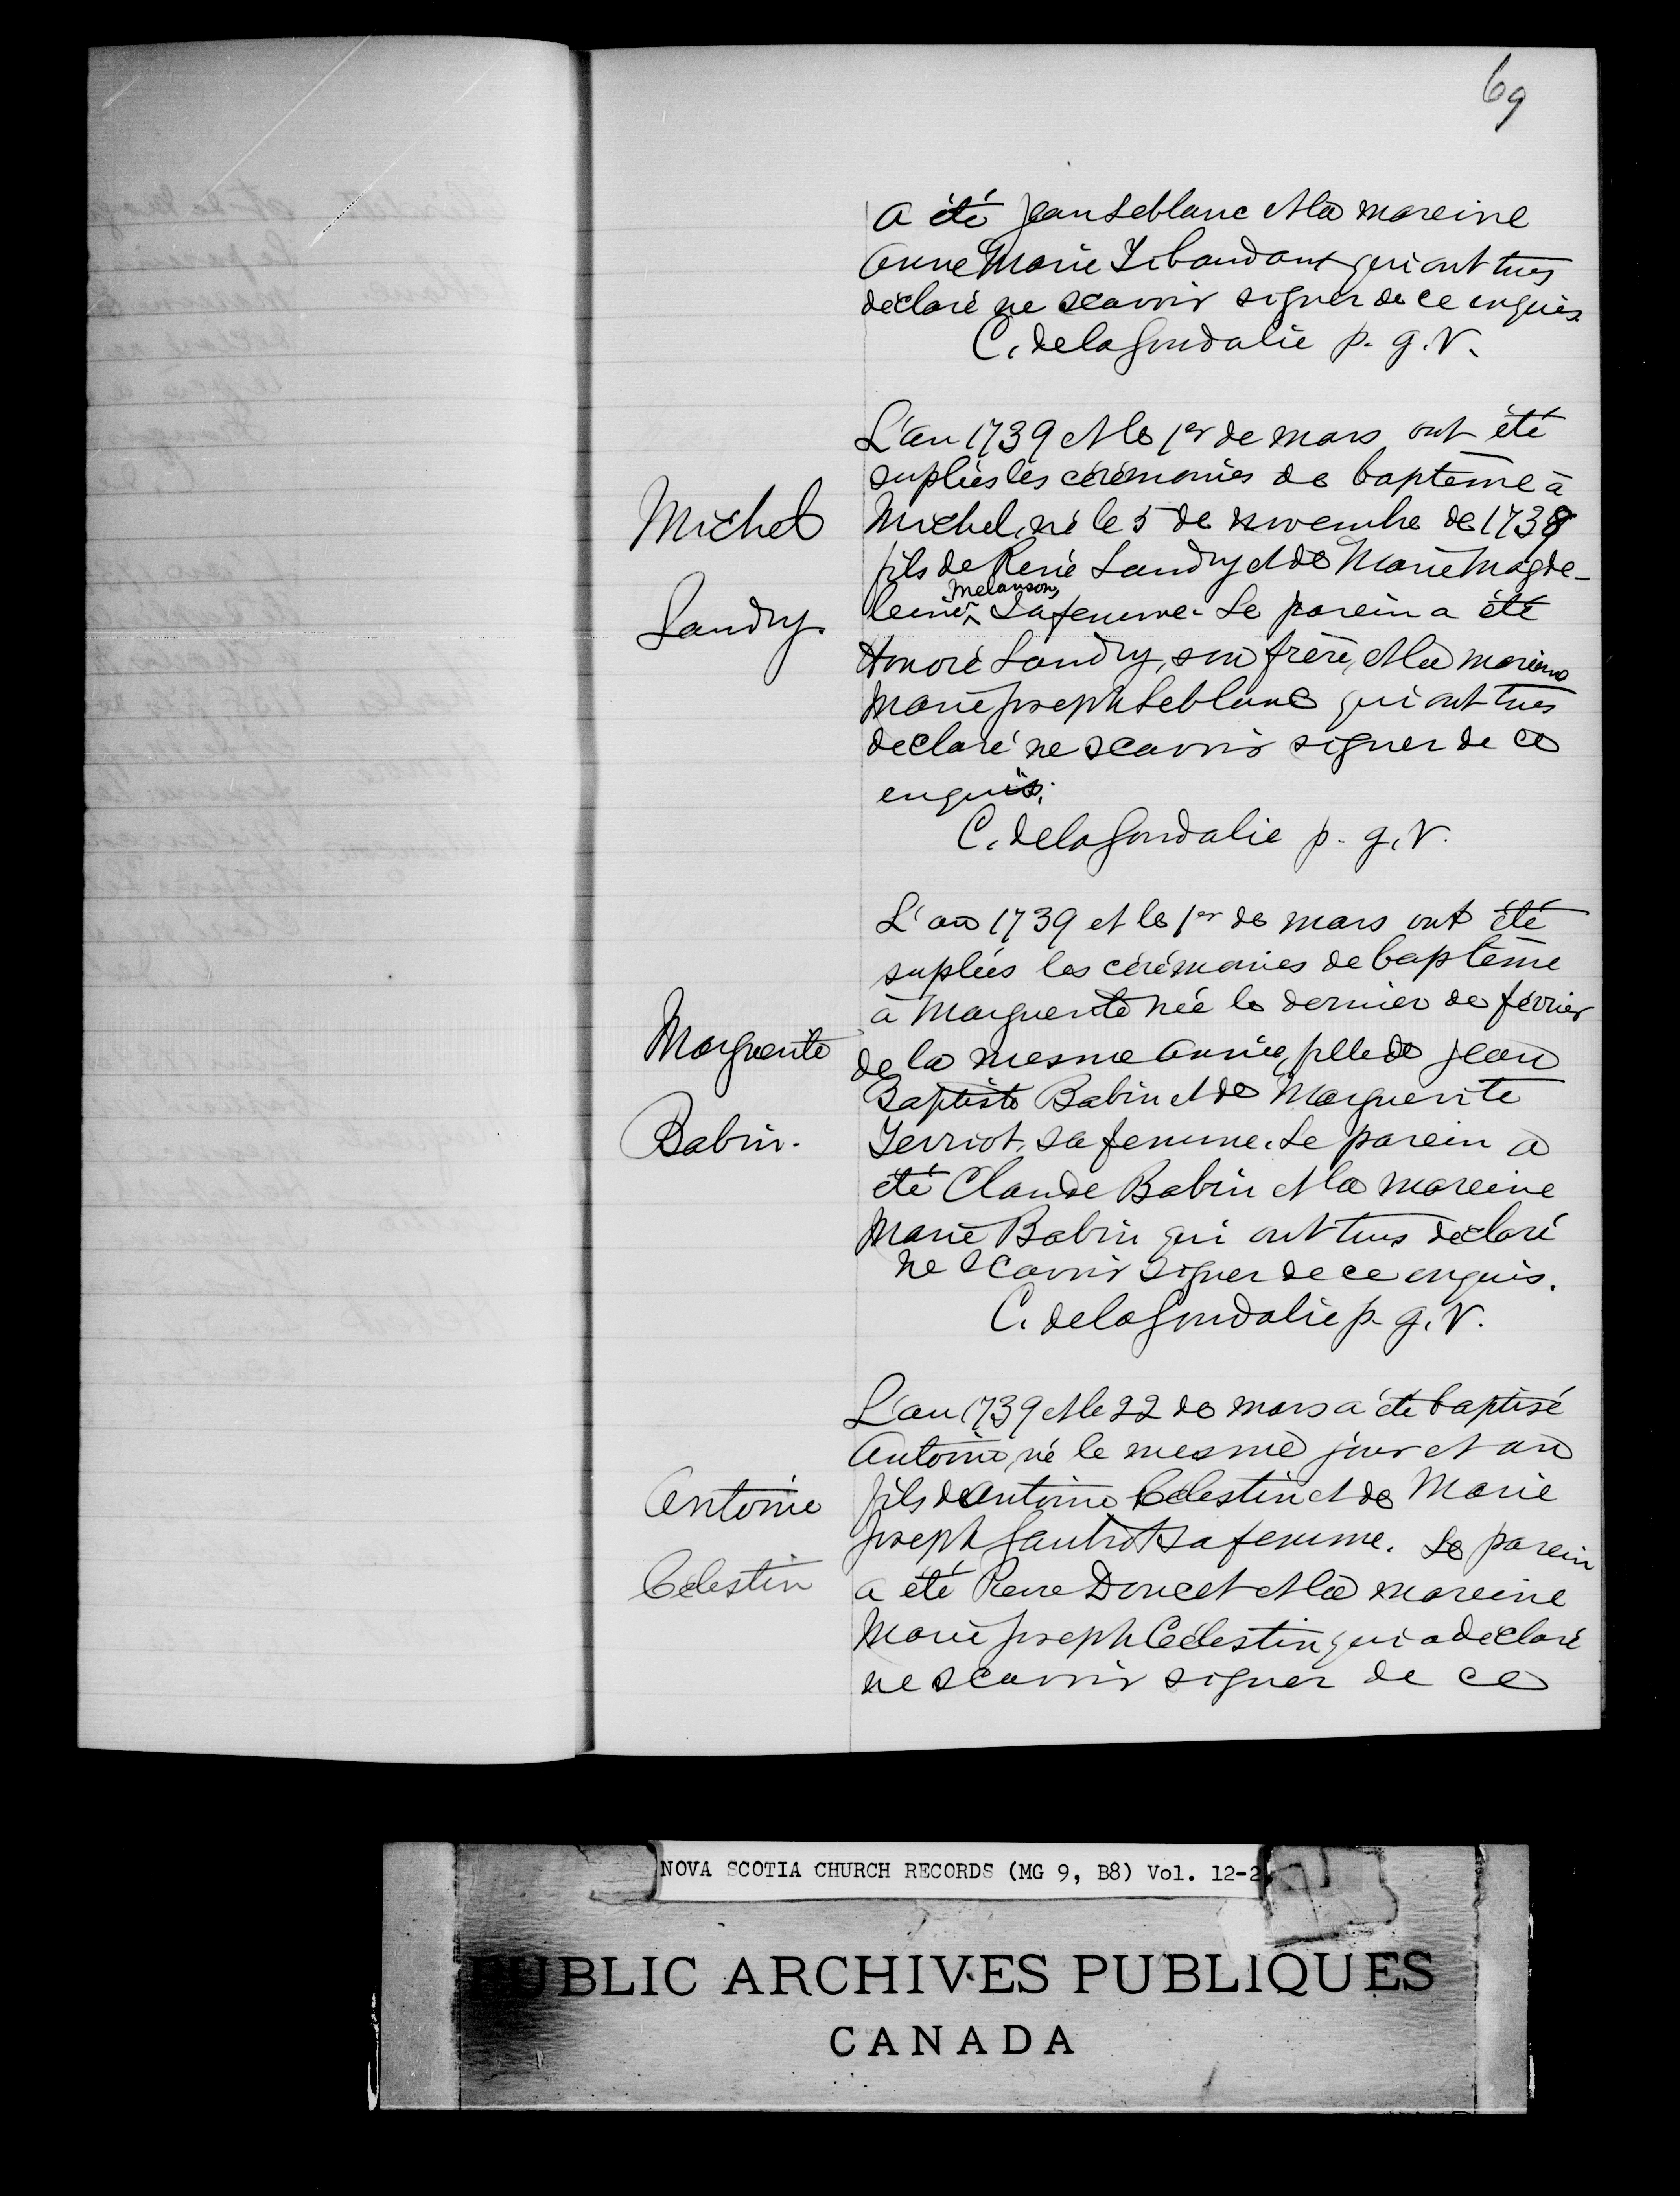 69
a été Jean Leblanc et la mareine
Anne Marie Tibaudaux qui ont tous
déclaré ne scavoir signer de ce enquis
C. de la Goudalie p. g. V.
L'an 1739 et le 1er de mars ont été
supliés les cérémonies de baptême à
Michel Michel, né le 5 de novembre de 1738
fils de René Landry et de Marie Magde-
Melanson,
Landry. leine ^ sa femme. Le parein a été
Honoré Landry, son frère, et la mareine
Marie Joseph Leblanc qui ont tous
declaré ne scavoir signer de ce
enquis.
C. de la Goudalie p. g. V.
L'an 1739 et le 1er de mars ont été
supliés les cérémonies de baptême
à Marguerite née le dernier de février
Marguerite de la mesme année, fille de Jean
Baptiste Babin et de Marguerite
Babin. Terriot, sa femme. Le parein a
été Claude Babin et la mareine
Marie Babin qui ont tous déclaré
ne scavoir signer de ce enquis.
C. de la Goudalie p. g. V.
L'an 1739 et le 22 de mars a été baptisé
Antoine, né le mesme jour et an
Antoine fils de Antoine Célestin et de Marie
Joseph Gautrot sa femme. Le parein
Célestin a été Pierre Doucet et la mareine
Marie Joseph Célestin qui a declaré
ne scavoir signer de ce
NOVA SCOTIA CHURCH RECORDS (MG 9, B8) Vol. 12-2
PUBLIC ARCHIVES PUBLIQUES
CANADA